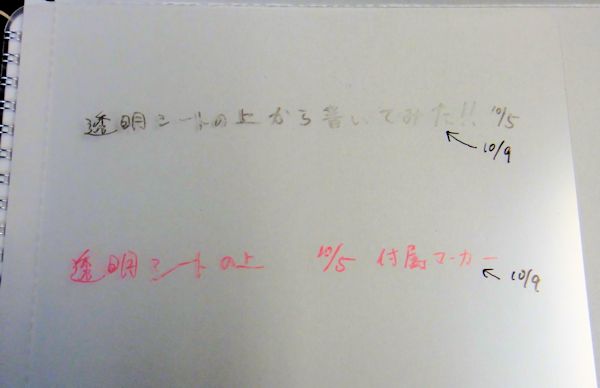 透明シートの上から書いてみた!! 10/5
10/9
透明シートの上 10/5 付属マーカー
10/9